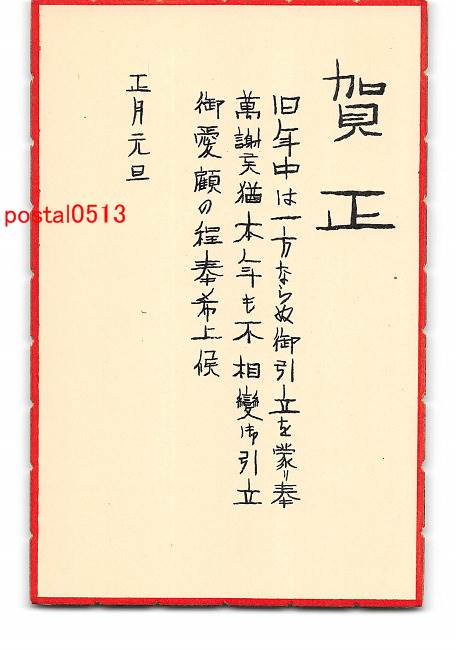 賀正
旧年中は一方ならぬ御引立を蒙り奉
萬謝候猶本年も不相變御引立
御愛顧の程奉希上候
正月元旦
postal0513